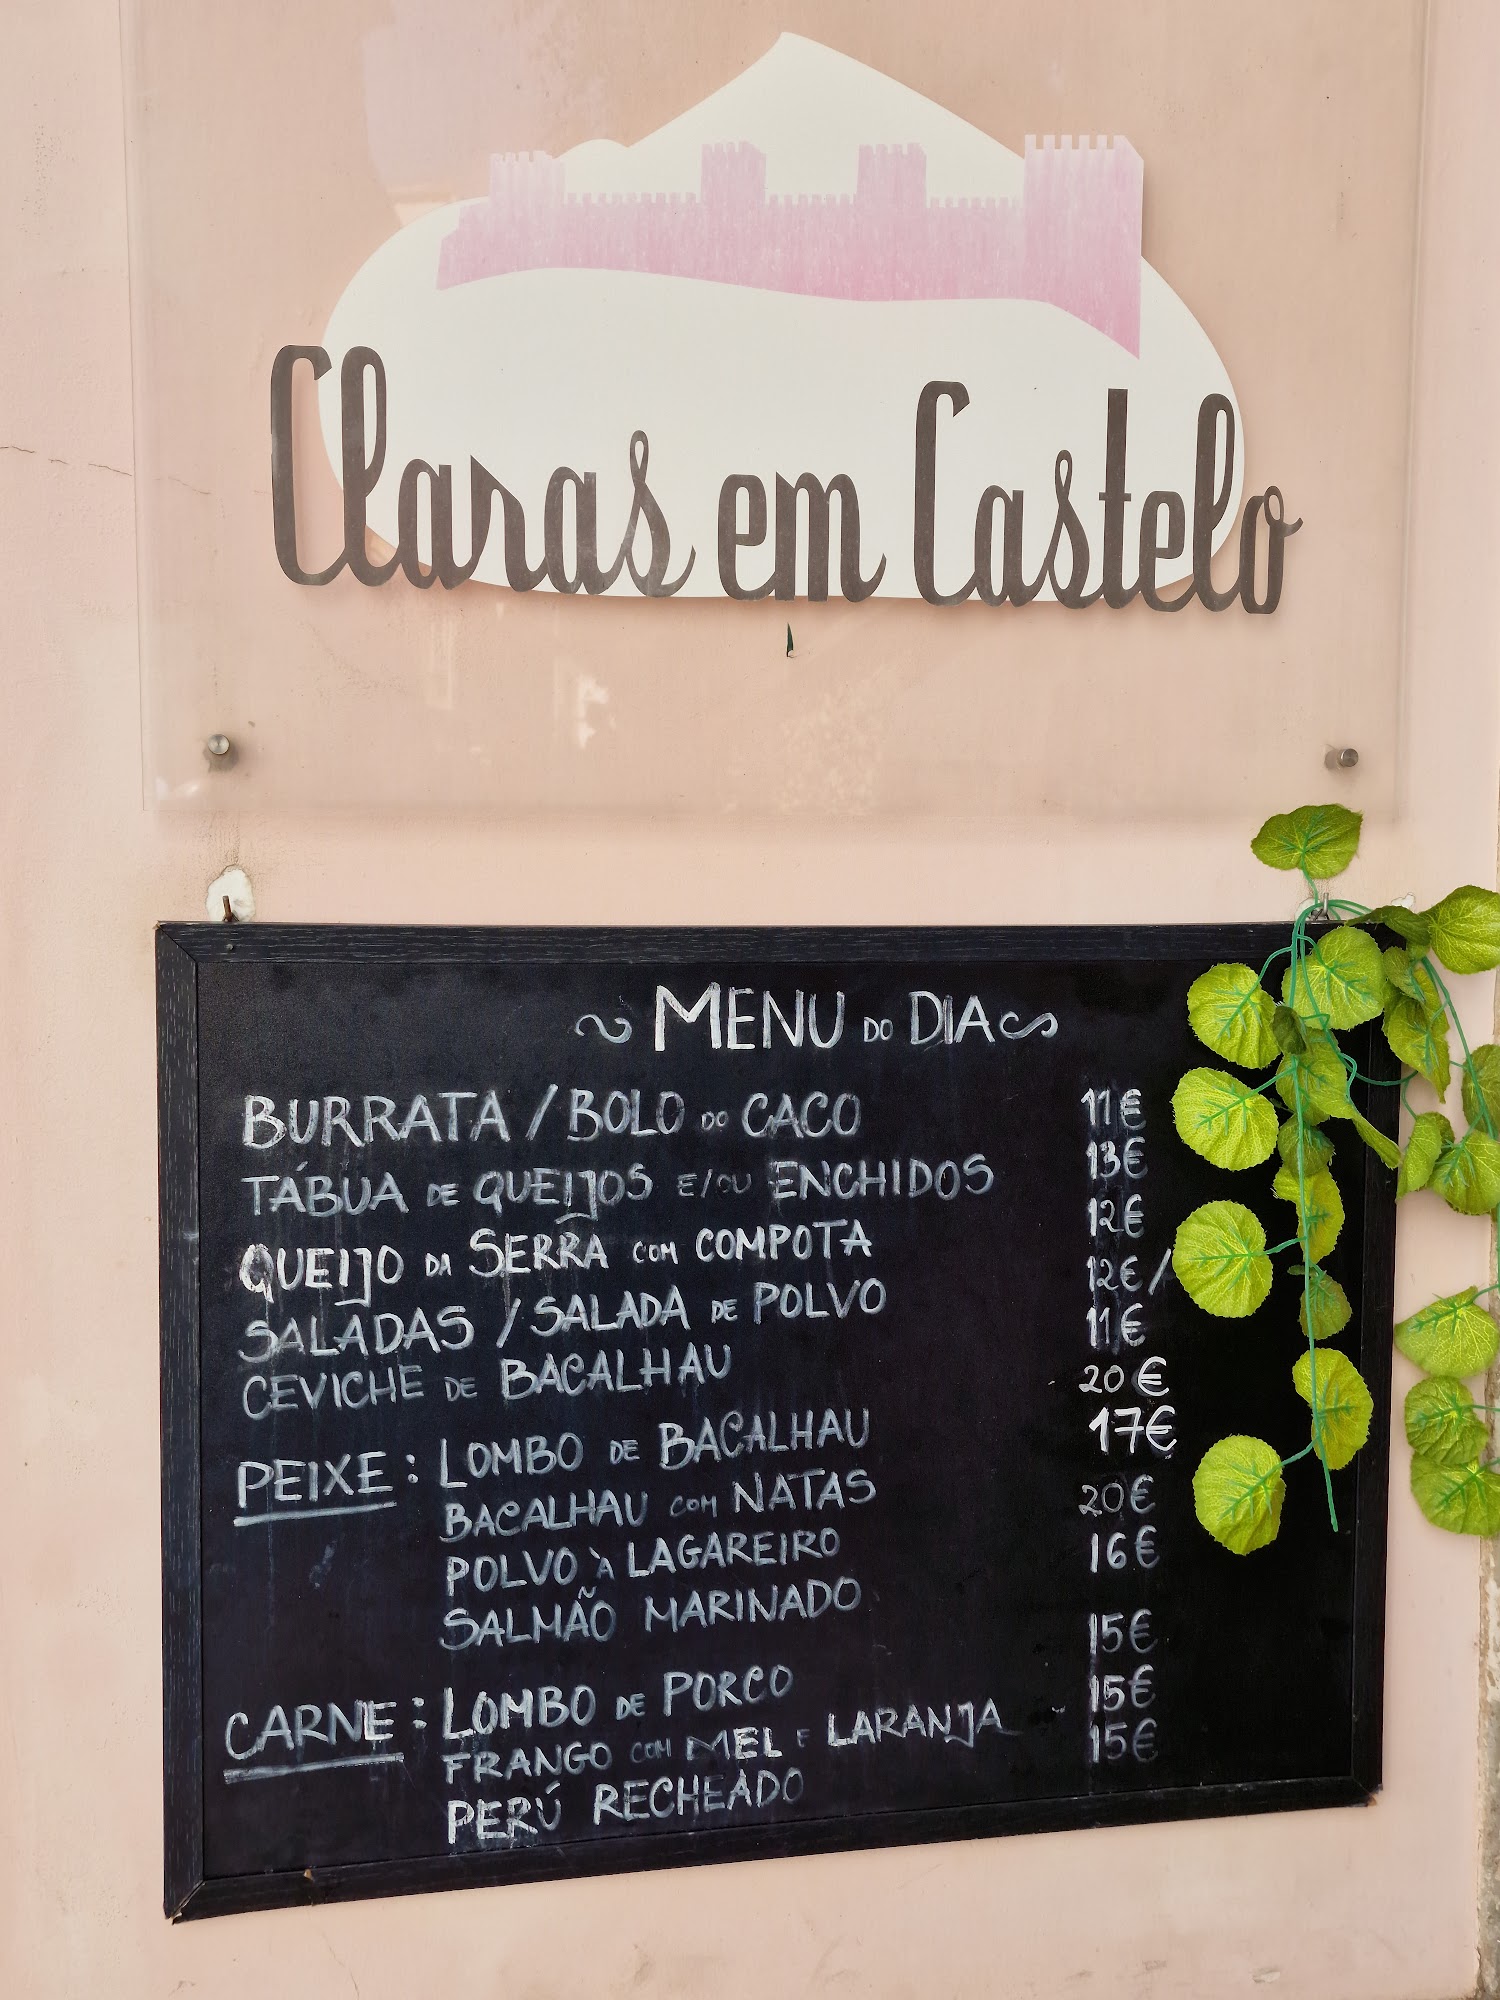 Claras em Castelo
MENU DO DIA
BURRATA / BOLO DO CACO 11€
TÁBUA DE QUEIJOS E/OU ENCHIDOS 13€
QUEIJO DA SERRA COM COMPOTA 12€
SALADAS / SALADA DE POLVO 12€ /
CEVICHE DE BACALHAU 11€
PEIXE : LOMBO DE BACALHAU 20€
BACALHAU COM NATAS 17€
POLVO À LAGAREIRO 20€
SALMÃO MARINADO 16€
CARNE : LOMBO DE PORCO 15€
FRANGO COM MEL E LARANJA 15€
PERÚ RECHEADO 15€